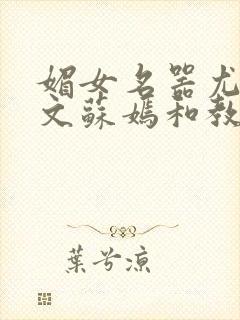 媚女名器尤
文蘇媽和教
葉兮涼